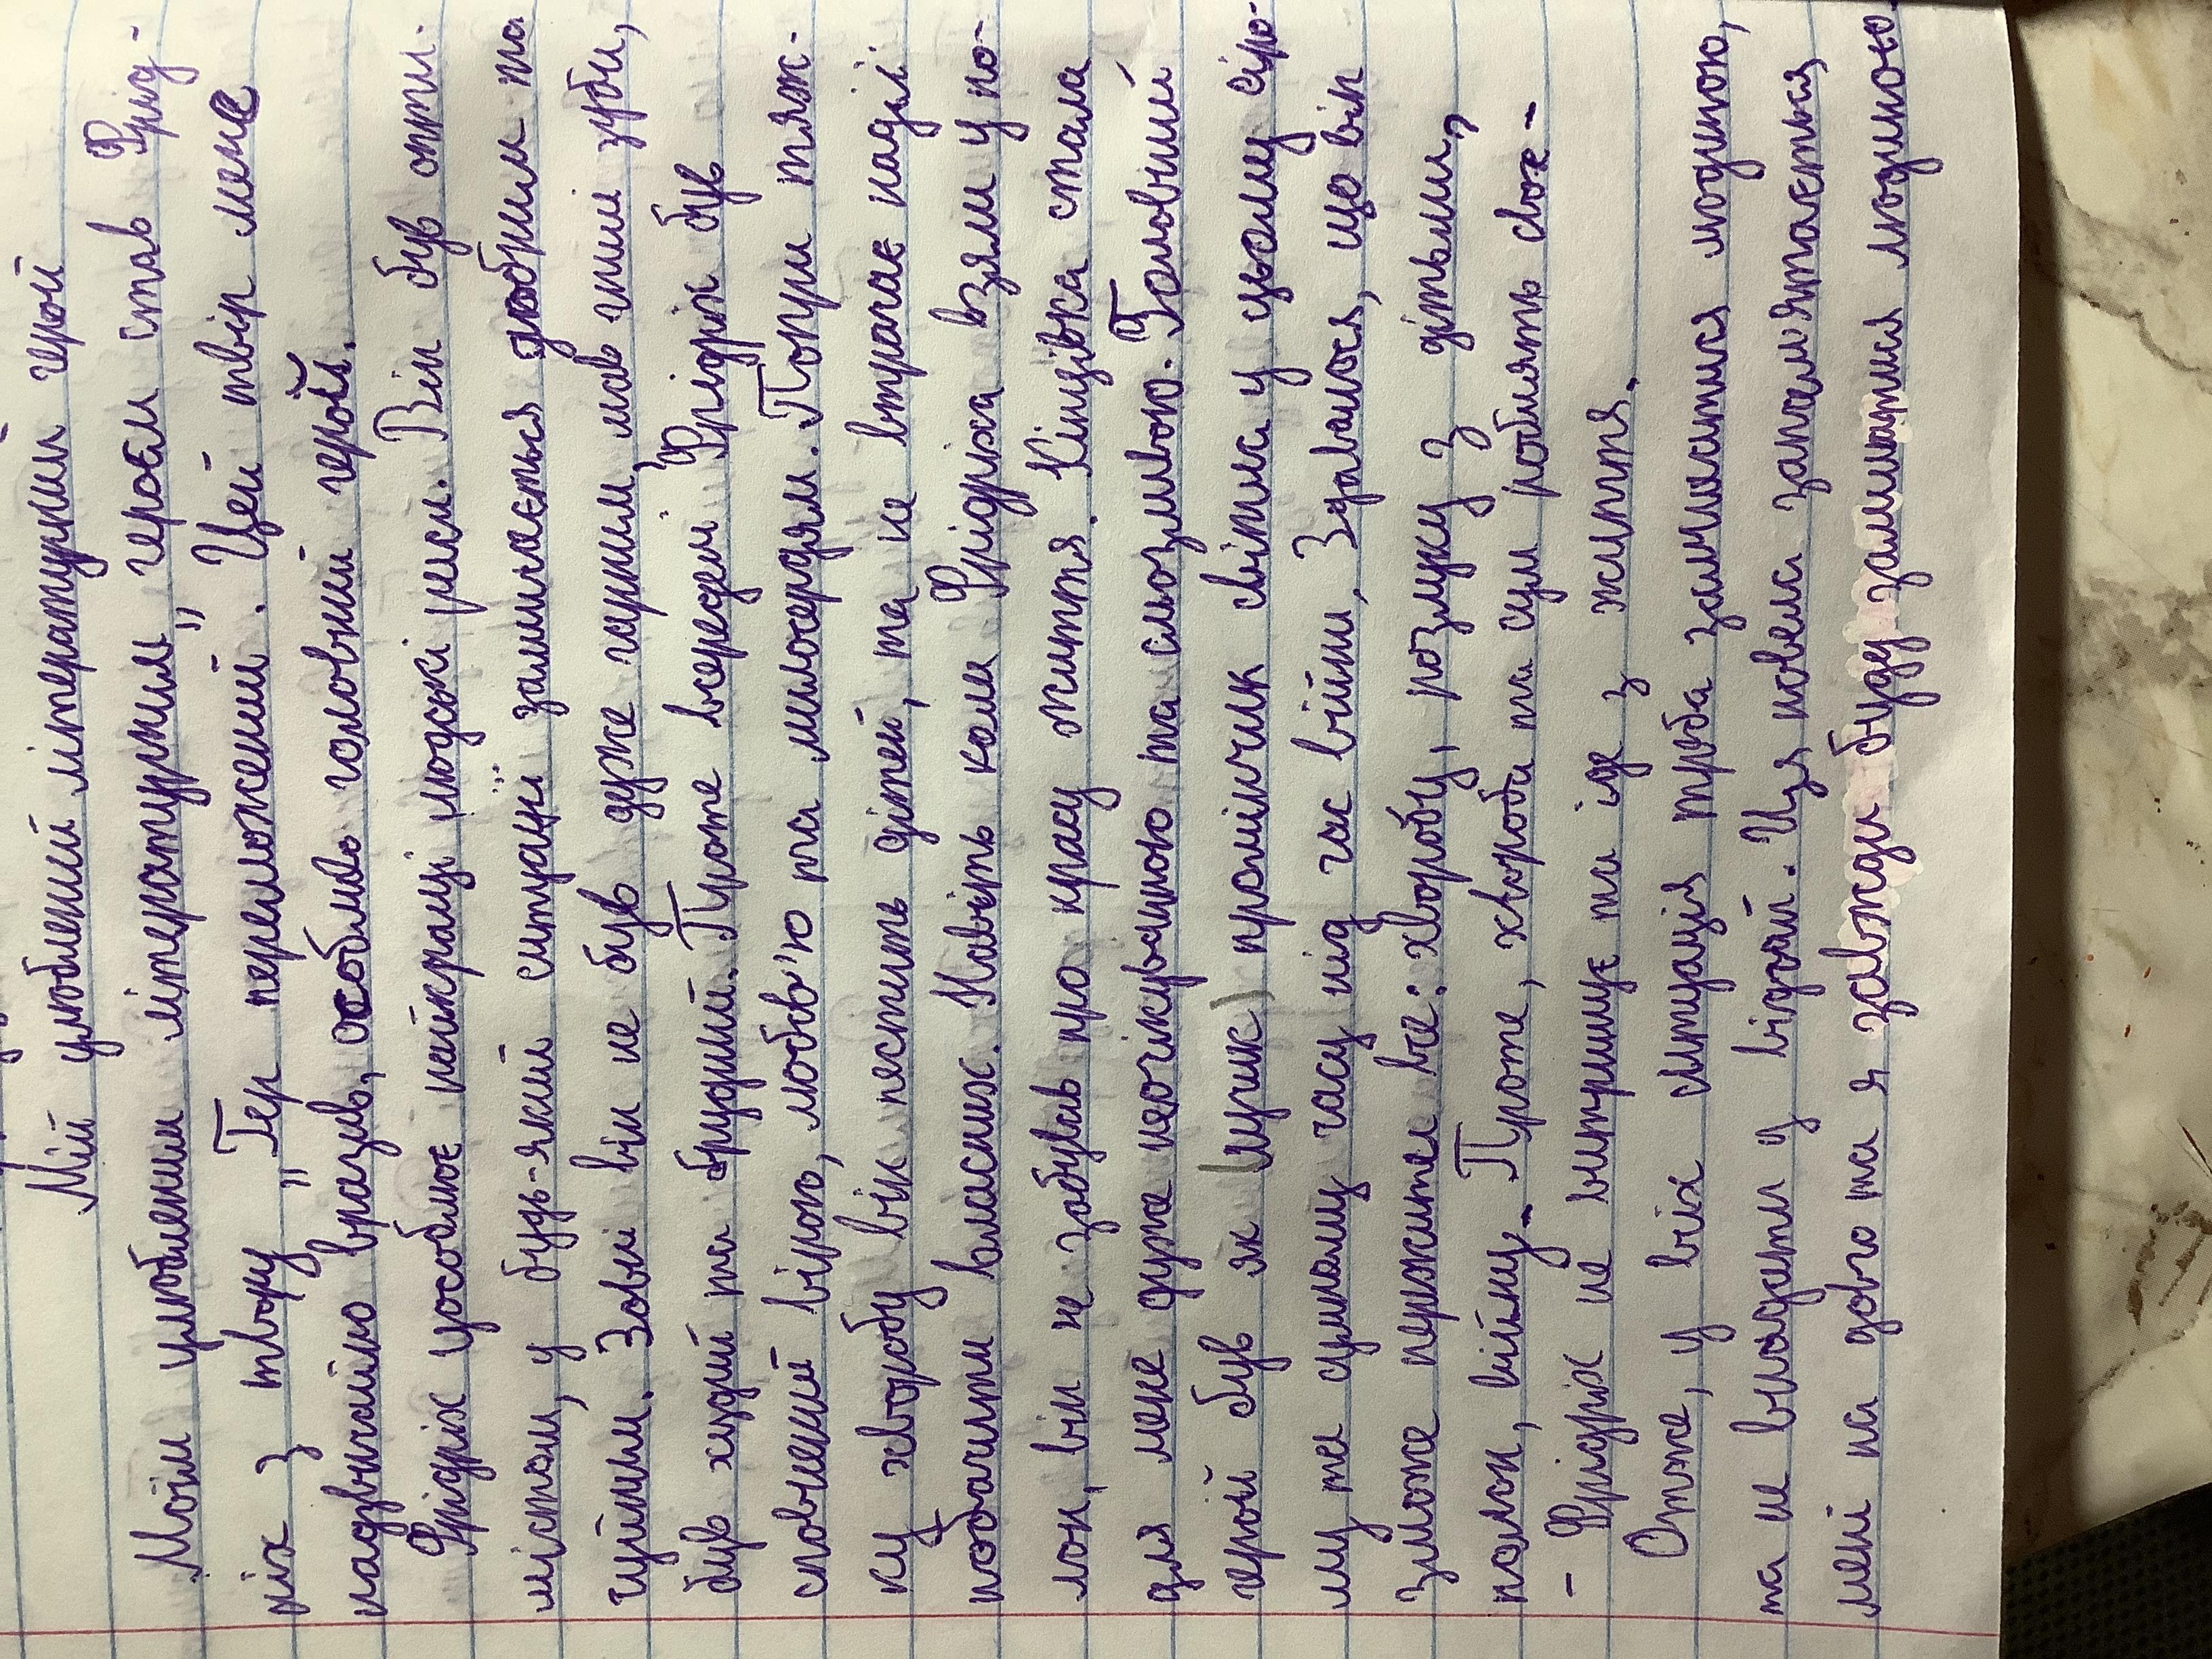 Мій улюблений літературний герой
Моїм улюбленим літературним героєм став Фрід-
ріх з твору „Гер переможений". Цей твір мене
надзвичайно вразив, особливо головний герой.
Фрідріх уособлює найкращі людські риси. Він був опти-
містом, у будь-якій ситуації залишається добрим та
чуйним. Зовні він не був дуже гарним, мав гнилі зуби,
був худий та брудний. Проте всередині Фрідріх був
сповнений вірою, любов'ю та милосердям. Попри тяж-
ку хворобу він пестить дітей, та не втрачає надії
побачити власних. Навіть коли Фрідріха взяли у по-
лон, він не забував про красу життя. Кінцівка стала
для мене дуже неочікуваною та сльозливою. Головний
герой був як (лучик) промінчик світла у цьому сіро-
му та сумному часу під час війни. Здавалося, що він
зможе пережити все: хворобу, розлуку з дітьми,
полон, війну. Проте, хвороба та сум роблять своє -
- Фрідріх не витримує та іде з життя.
Отже, у всіх ситуація треба залишатися людиною,
та не впадати у відчай. Ця новела запам'ятається
мені на довго та я завжди буду залишатися людиною.